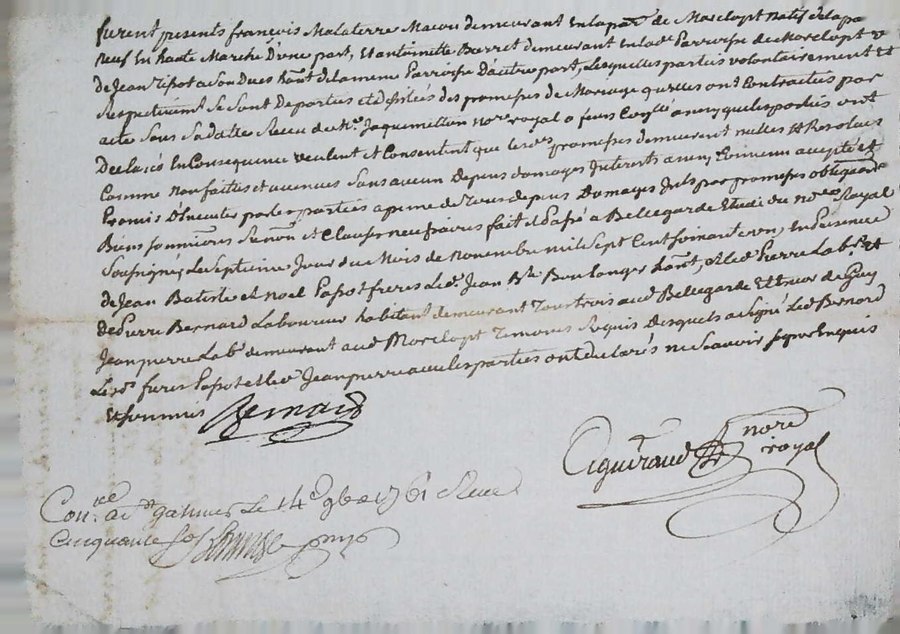 furent presents françois Malaterre Macon demeurant En la par. de Marclopt natif de la pa
neuf En haute Marche D'une part, Et antoinette Berret demeurant En lade. Parroisse de Marclopt
de Jean a Son Duës hant. de la meme Parroisse D'autre part, Lesquelles parties volontairement Et
Respectivemt. Se Sont Departies et desistées des promesses de Mariage qu'elles ont Contractés par
acte Sous Sa datte Receu de Me. Jaquemetton nore. royal a feurs a ce que les parties ont
Declarés En Consequence veulent et Consentent que lesdes. promesses demeurant nulles Et Resolues
Comme non faittes et avenues Sans aucun Depens domages Interests ainsy Convenu accepté et
Promis D'Executer par les parties a peine de Tous depens Domages Ints. par promesses obligaons.
Biens Renon. et Clauses necessaires fait et Passé a Bellegarde Etude du nore. Royal
Soussigné Le Septieme Jour du Mois de novembre mil Sept Cent Soixante un, En Presence
de Jean Batiste et Noel Papot freres Led. Jean Bte. Boulanger hant. et Led. Pierre Labr. et
de Pierre Bernard Laboureur habitant demeurant Tous trois aud. Bellegarde Et de Guy
Jeanpierre Labr. demeurant aud. Marclopt Temoins Requis Desquels a Signé Led. Bernard
Lesds. freres Papot et led. Jeanpierre avec les parties ont declarés ne Scavoir Signer Enquis
Et Sommés Bernard
Cigueraud nore. royal
Con.lé a St galmier Le 14e 9bre 1761 Receu
Cinquante